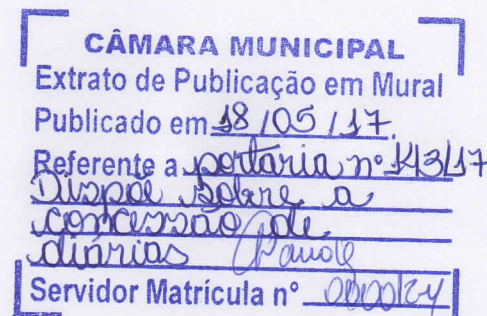 CÂMARA MUNICIPAL
Extrato de Publicação em Mural
Publicado em 18/05/17.
Referente a portaria nº 143/17
Dispõe sobre a
concessão de
diárias
Servidor Matrícula nº